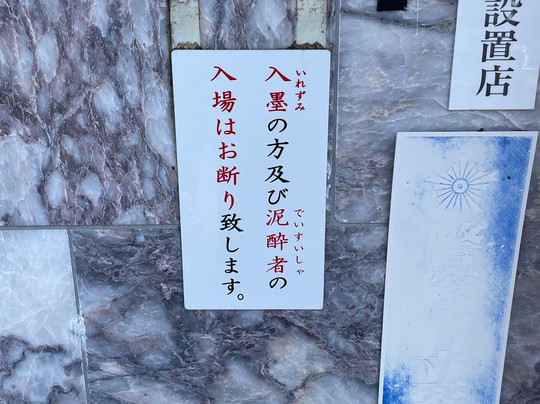 設置店
入墨の方及び泥酔者の
いれずみ
でいすいしゃ
入場はお断り致します。